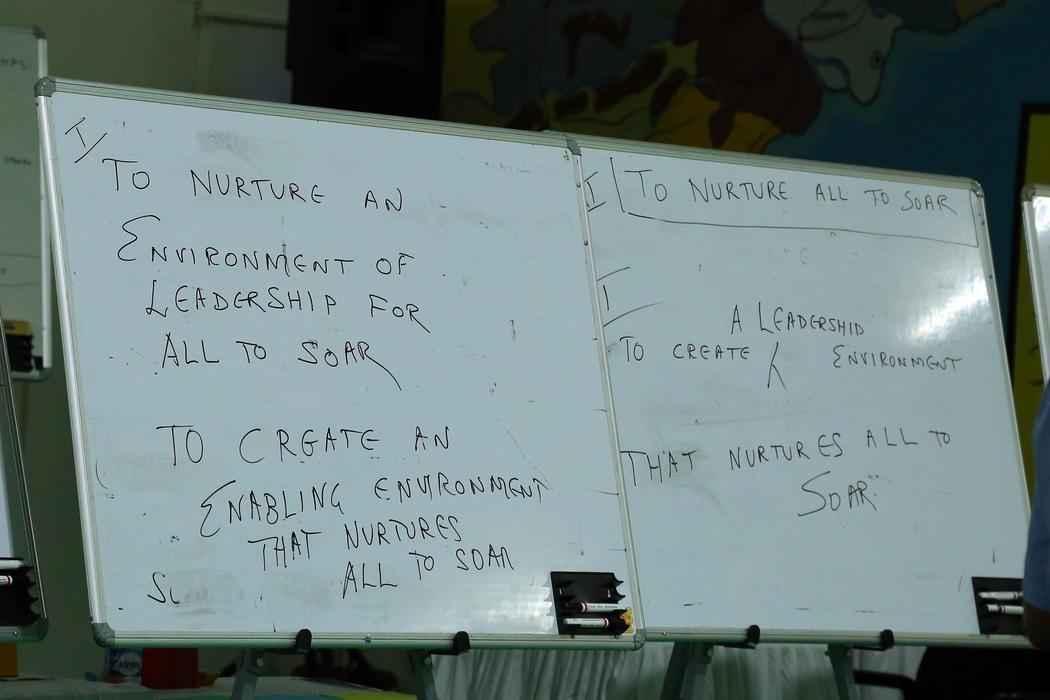 I/
TO NURTURE AN
ENVIRONMENT OF
LEADERSHIP FOR
ALL TO SOAR
TO CREATE AN
ENABLING ENVIRONMENT
THAT NURTURES
ALL TO SOAR
TO NURTURE ALL TO SOAR
A LEADERSHIP
TO CREATE ENVIRONMENT
THAT NURTURES ALL TO
SOAR